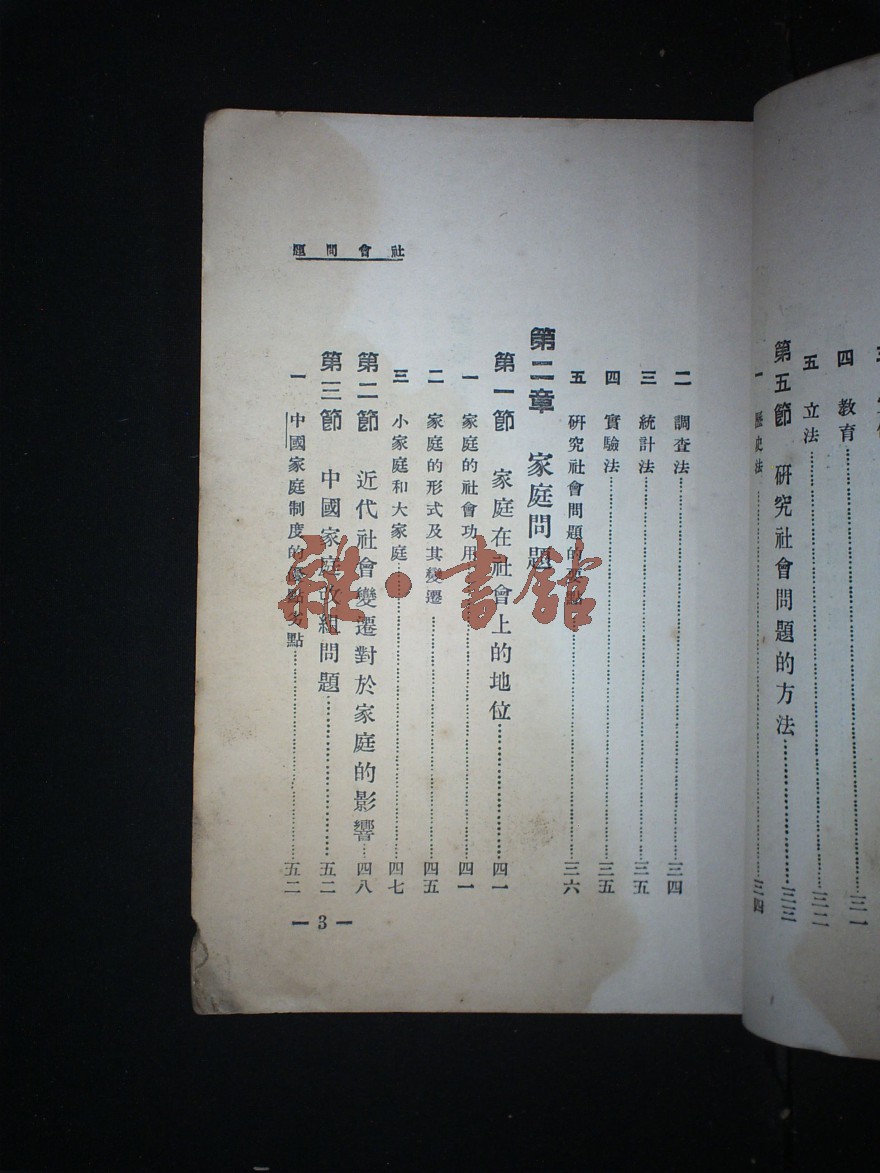 四 教育……三一
五 立法……三二
第五節 研究社會問題的方法……三三
一 歷史法……三四
社會問題
二 調查法……三四
三 統計法……三五
四 實驗法……三五
五 研究社會問題的要點……三六
第二章 家庭問題
第一節 家庭在社會上的地位……四一
一 家庭的社會功用……四一
二 家庭的形式及其變遷……四五
三 小家庭和大家庭……四七
第二節 近代社會變遷對於家庭的影響……四八
第三節 中國家庭改組問題……五二
一 中國家庭制度的優點劣點……五二
— 3 —
雜·書館